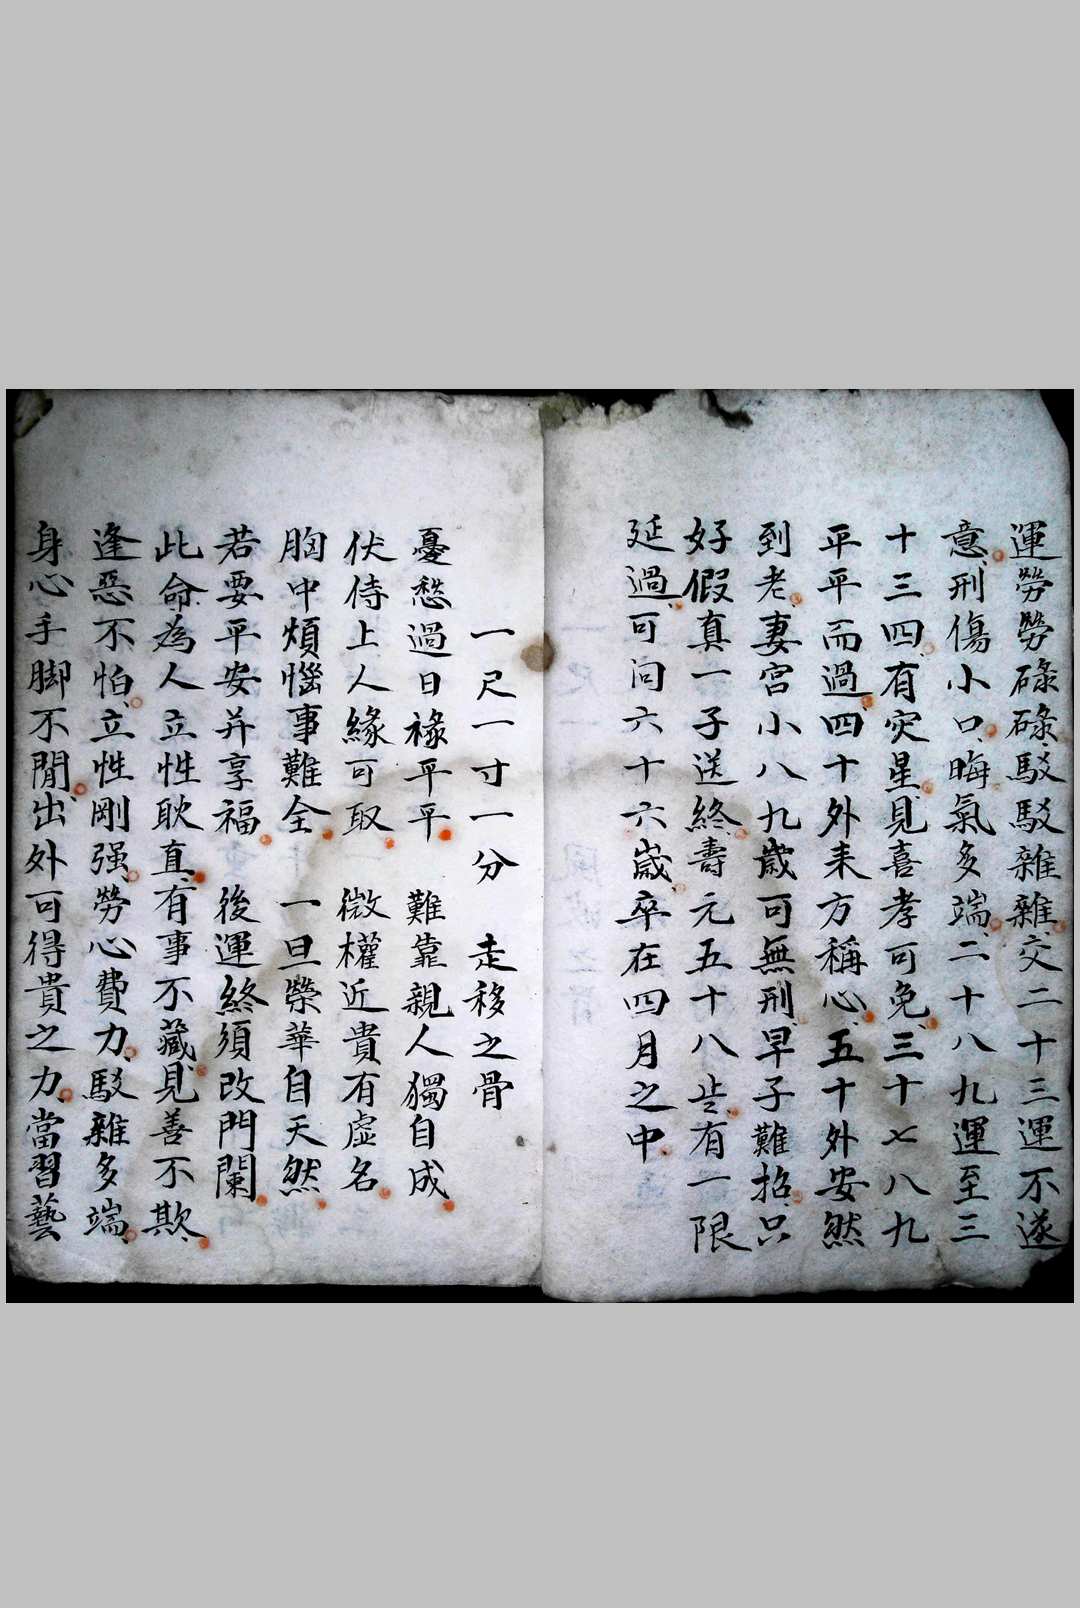 運勞勞碌碌駁駁雜雜交二十三運不遂
意刑傷小口晦氣多端二十八九運至三
十三四有灾星見喜孝可免三十七八九
平平而過四十外來方稱心五十外安然
到老妻宮小八九歲可無刑早子難招只
好假真一子送終壽元五十八歲有一限
延過可问六十六歲卒在四月之中
一尺一寸一分 走移之骨
憂愁過日祿平平 難靠親人獨自成
伏侍上人緣可取 微權近貴有虛名
胸中煩惱事難全 一旦榮華自天然
若要平安并享福 後運終須改門闌
此命為人立性耿直有事不藏見善不欺
逢惡不怕立性剛强勞心費力駁雜多端
身心手脚不閒出外可得貴之力當習藝